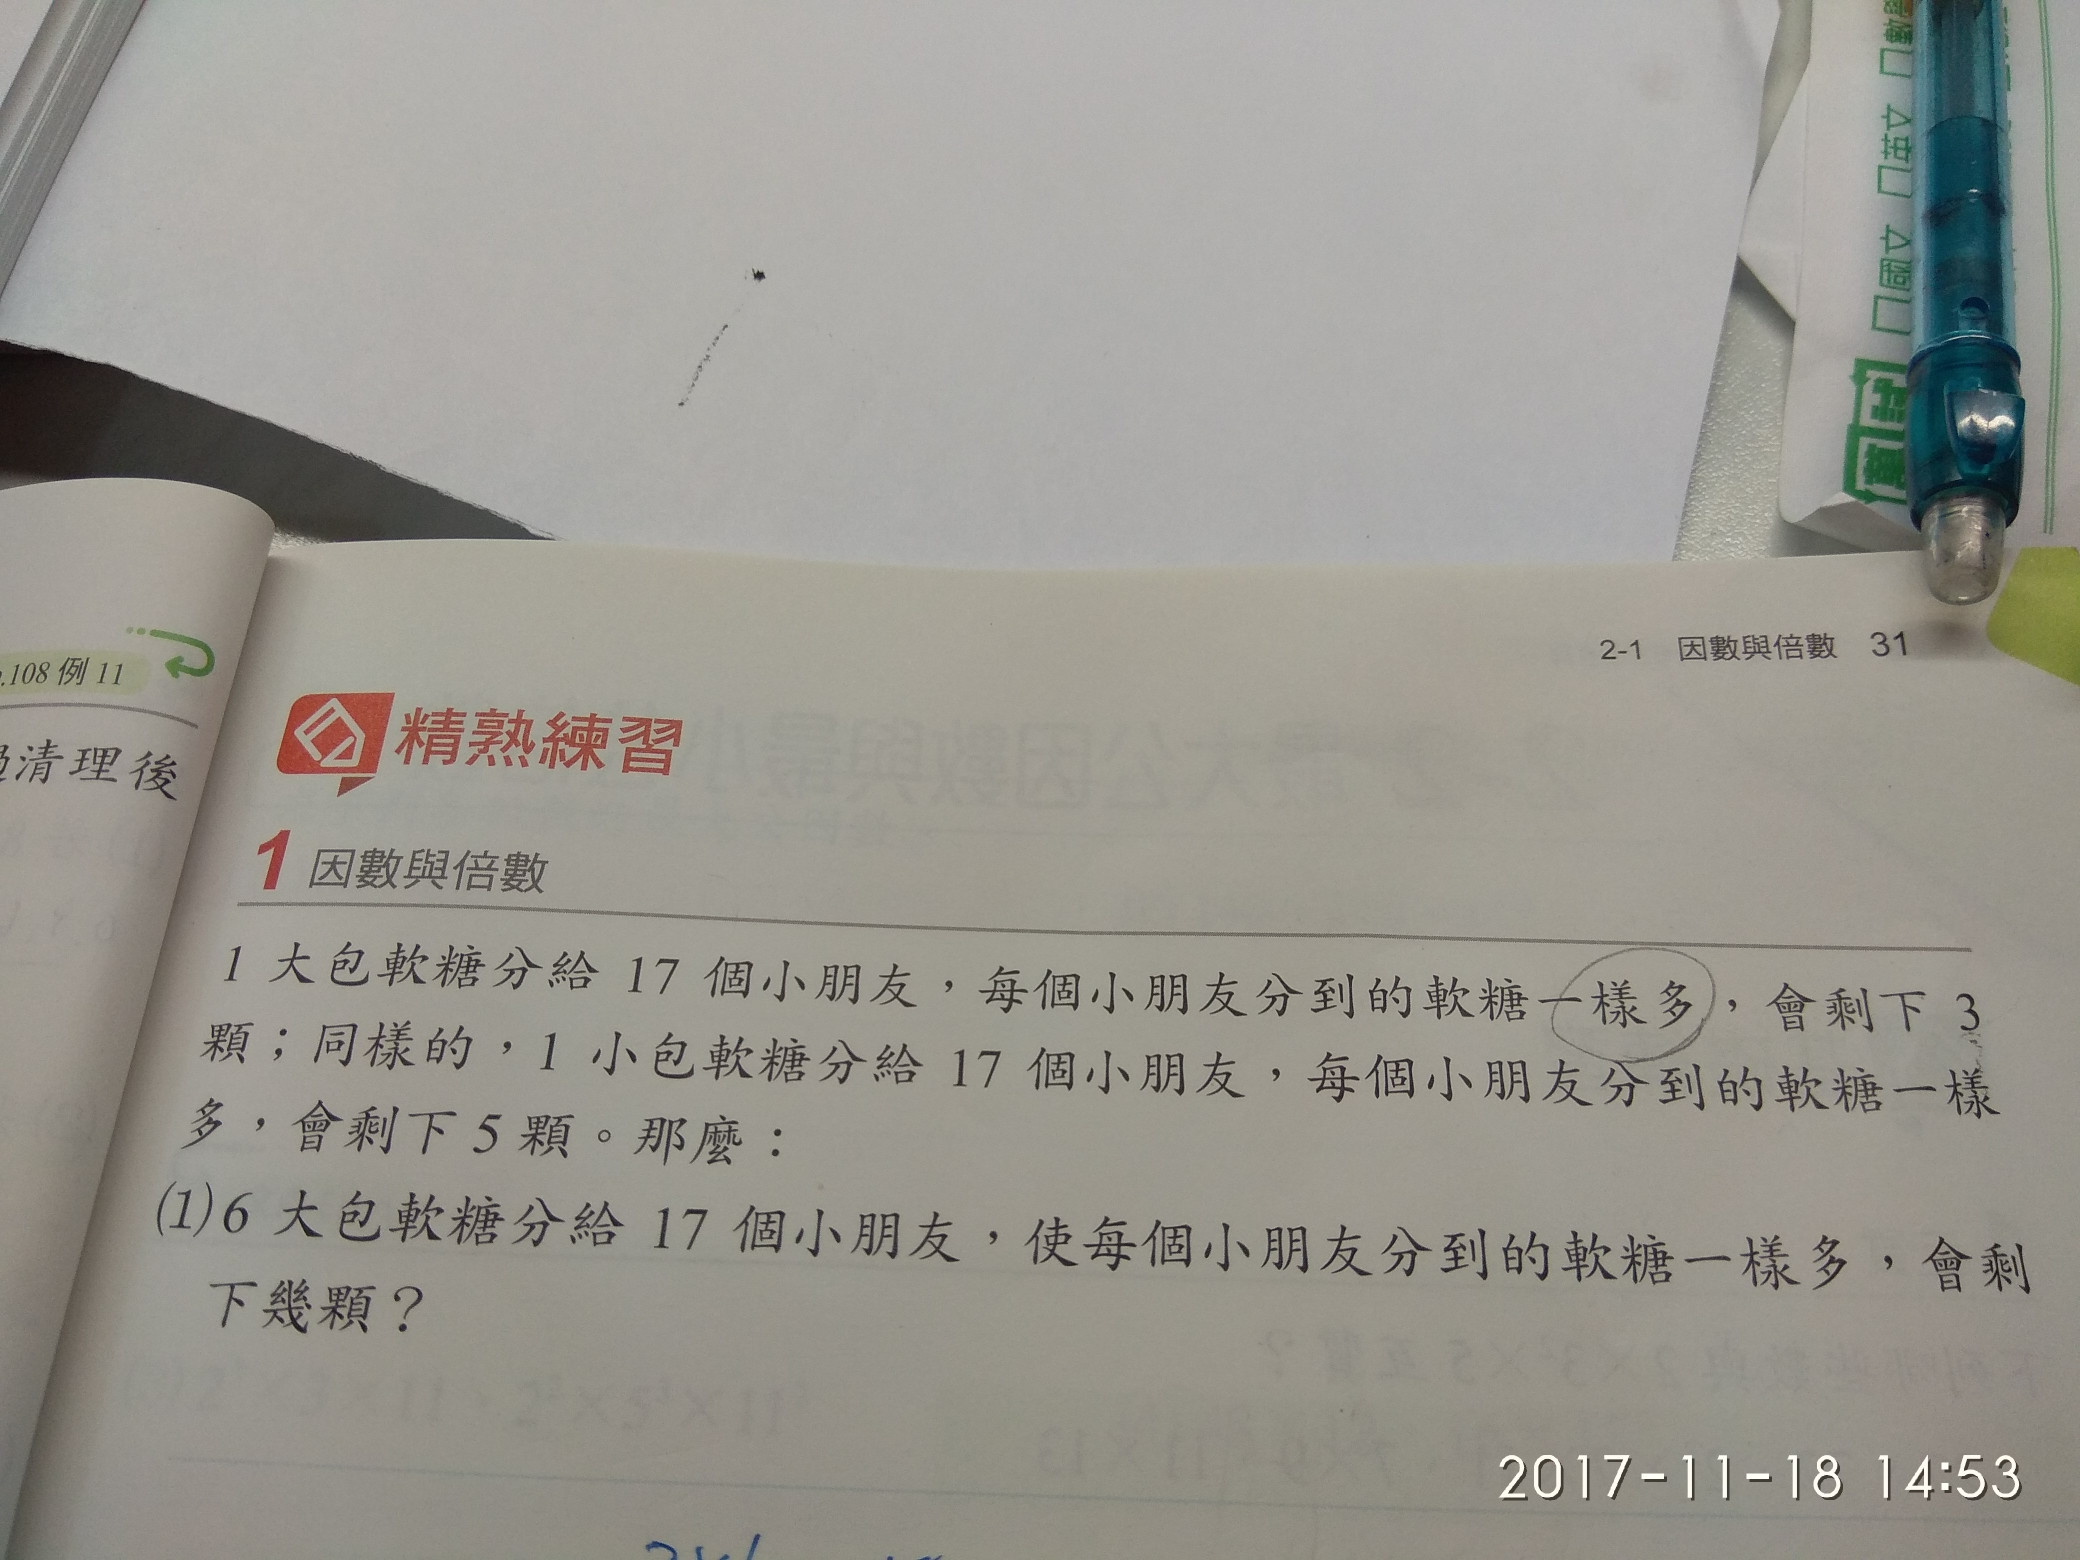 2-1 因數與倍數 31
.108 例 11
清理後
精熟練習
1 因數與倍數
1 大包軟糖分給 17 個小朋友，每個小朋友分到的軟糖一樣多，會剩下 3
顆；同樣的，1 小包軟糖分給 17 個小朋友，每個小朋友分到的軟糖一樣
多，會剩下 5 顆。那麼：
(1) 6 大包軟糖分給 17 個小朋友，使每個小朋友分到的軟糖一樣多，會剩
下幾顆？
2017-11-18 14:53